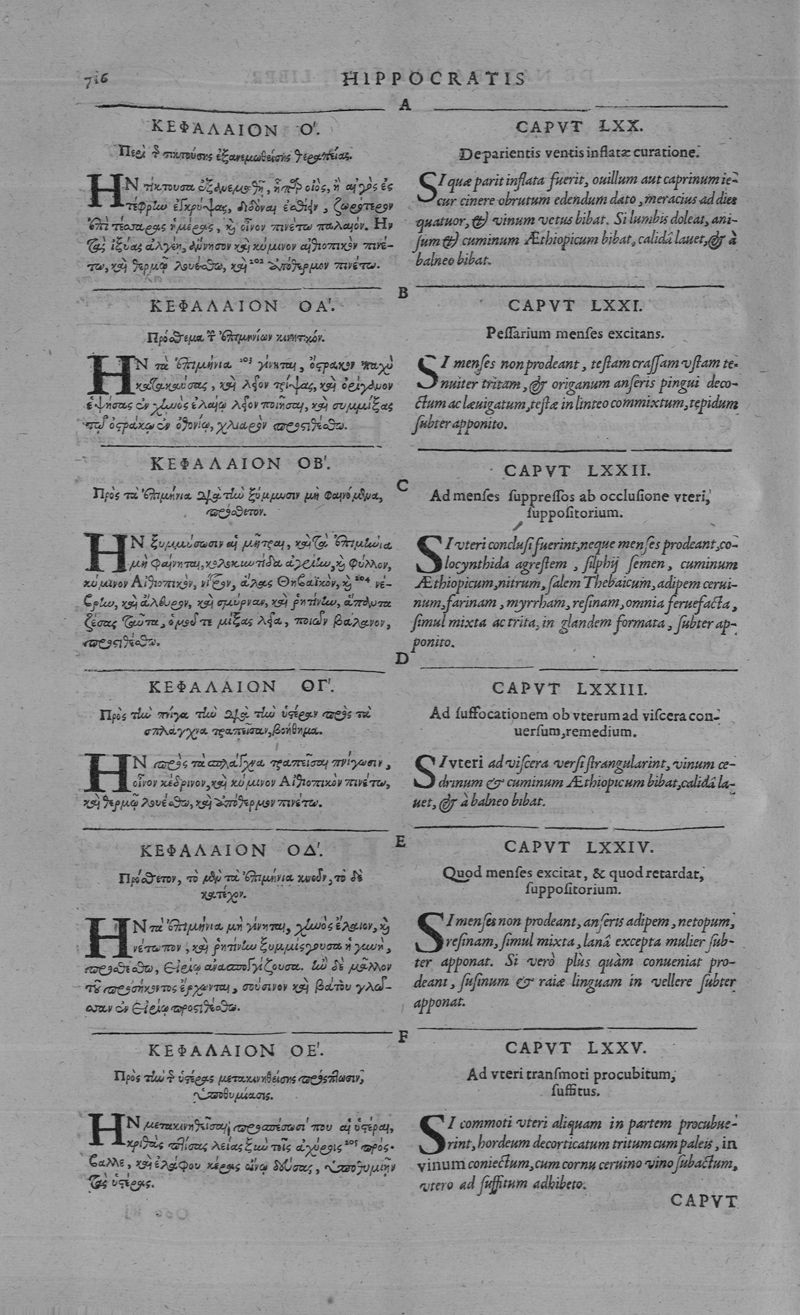 716
HIPPOCRATIS
A
ΚΕΦΑΛΑΙΟΝ Ο΄.
Περὶ τῆς τικτούσης ἐξανεμωθείσης θεραπείας.
ΗΝ τίκτουσα
τέφρῃ ἐγκρύψας, διδόναι ἐσθίειν, ζωρότερον
ἐπὶ τέσσαρας ἡμέρας, καὶ οἶνον πινέτω παλαιόν. Ην
τὰς ἰξύας ἀλγέῃ, ἄννησον καὶ κύμινον αἰθιοπικὸν πινέ-
τω, καὶ θερμῷ λουέσθω, καὶ 102 ἀπόθερμον πινέτω.
CAPVT LXX.
De parientis ventis inflatæ curatione.
SI quæ parit inflata fuerit, ouillum aut caprinum ie-
cur cinere obrutum edendum dato, meracius ad dies
quatuor, & vinum vetus bibat. Si lumbis doleat, ani-
sum & cuminum Æthiopicum bibat, calidâ lauet, & à
balneo bibat.
B
ΚΕΦΑΛΑΙΟΝ ΟΑ΄.
Πρόσθεμα τῶν ἐπιμηνίων κινητικόν.
ΗΝ τὰ ἐπιμήνια 103 γίνηται, ὄστρακον παχὺ
κατακαύσας, καὶ λεῖον τρίψας, καὶ ὀρίγανον
ἑψήσας ἐν χηνὸς ἐλαίῳ λεῖον ποιῆσαι, καὶ συμμίξας
τῷ ὀστράκῳ ἐν ὀθονίῳ, χλιαρὸν προστιθέσθω.
CAPVT LXXI.
Pessarium menses excitans.
SI menses non prodeant, testam crassam vstam te-
nuiter tritam, & origanum anseris pingui deco-
ctum ac læuigatum, testæ in linteo commixtum, tepidum
subter apponito.
C
ΚΕΦΑΛΑΙΟΝ ΟΒ΄.
Πρὸς τὰ ἐπιμήνια διὰ τὴν ξύμμυσιν μὴ φαινόμενα,
πρόσθετον.
ΗΝ ξυμμύσωσιν αἱ μῆτραι, καὶ τὰ ἐπιμήνια
μὴ φαίνηται, κολοκυντίδα ἀγρίην, καὶ φύλλον,
κύμινον Αἰθιοπικὸν, νίτρον, ἅλας Θηβαϊκὸν, καὶ 104 νέ-
βριον, καὶ ἄλευρον, καὶ σμύρναν, καὶ ῥητίνην, ἅπαντα
ζέσας ταῦτα, ὁμοῦ τε μίξας λεῖα, ποιεῖν βάλανον,
προστιθέσθω.
CAPVT LXXII.
Ad menses suppressos ab occlusione vteri,
suppositorium.
SI vteri conclusi fuerint, neque menses prodeant, co-
locynthida agrestem, silphij semen, cuminum
Æthiopicum, nitrum, salem Thebaicum, adipem cerui-
num, farinam, myrrham, resinam, omnia feruefacta,
simul mixta ac trita, in glandem formata, subter ap-
ponito.
D
ΚΕΦΑΛΑΙΟΝ ΟΓ΄.
Πρὸς τὴν πνῖγα τὴν διὰ τὴν ὑστέραν πρὸς τὰ
σπλάγχνα τραπεῖσαν, βοήθημα.
ΗΝ πρὸς τὰ σπλάγχνα τραπεῖσαι πνίγωσιν,
οἶνον κέδρινον, καὶ κύμινον Αἰθιοπικὸν πινέτω,
καὶ θερμῷ λουέσθω, καὶ ἀπόθερμον πινέτω.
CAPVT LXXIII.
Ad suffocationem ob vterum ad viscera con-
uersum, remedium.
SI vteri ad viscera versi strangularint, vinum ce-
drinum & cuminum Æthiopicum bibat, calidâ la-
uet, & à balneo bibat.
E
ΚΕΦΑΛΑΙΟΝ ΟΔ΄.
Πρόσθετον, τὸ μὲν τὰ ἐπιμήνια κινοῦν, τὸ δὲ
κατέχον.
ΗΝ τὰ ἐπιμήνια μὴ γίνηται, χηνὸς ἔλαιον, καὶ
νέτωπον, καὶ ῥητίνην ξυμμίσγουσα ἡ γυνὴ,
προσθέσθω, εἰρίῳ ἀνασπογγίζουσα. ἢν δὲ μᾶλλον
τοῦ προσήκοντος ἔρχωνται, σούσινον καὶ βάτου γλῶσ-
σαν ἐν εἰρίῳ προστιθέσθω.
CAPVT LXXIV.
Quod menses excitat, & quod retardat,
suppositorium.
SI menses non prodeant, anseris adipem, netopum,
resinam, simul mixta, lanâ excepta mulier sub-
ter apponat. Si verò plùs quàm conueniat pro-
deant, susinum & raiæ linguam in vellere subter
apponat.
F
ΚΕΦΑΛΑΙΟΝ ΟΕ΄.
Πρὸς τὴν τῆς ὑστέρας μετακινηθείσης πρόσπτωσιν,
ὑποθυμίασις.
ΗΝ μετακινηθεῖσαι προσπέσωσί που αἱ ὑστέραι,
κριθὰς πτίσας λείας ξὺν τοῖς ἀχύροις 105 πρόσ-
βαλλε, καὶ ἐλάφου κέρας οἴνῳ δεύσας, ὑποθυμιῆν
τὰς ὑστέρας.
CAPVT LXXV.
Ad vteri transmoti procubitum,
suffitus.
SI commoti vteri aliquam in partem procubue-
rint, hordeum decorticatum tritum cum paleis, in
vinum coniectum, cum cornu ceruino vino subactum,
vtero ad suffitum adhibeto.
CAPVT